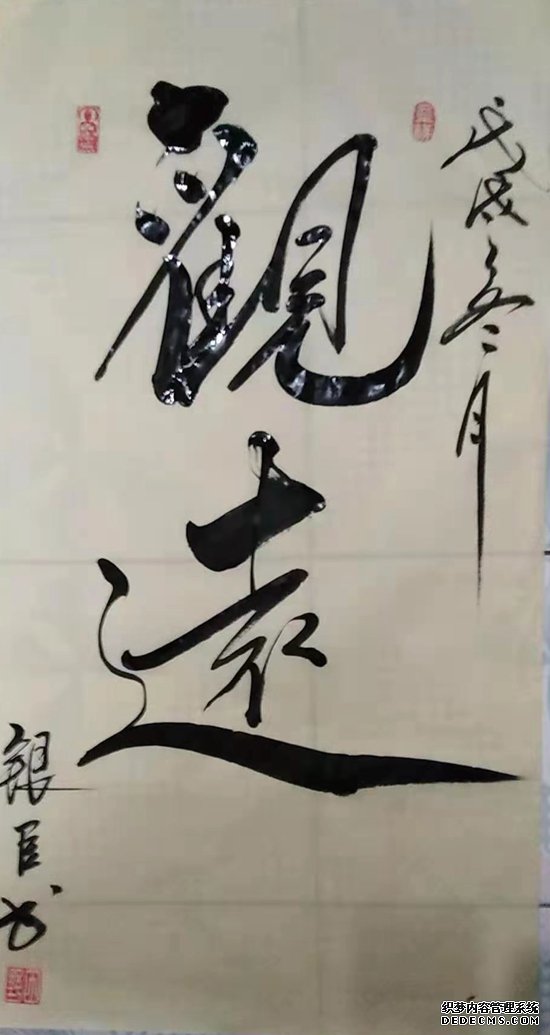 戊戌冬月
觀
遠
銀臣书
织梦内容管理系统
DEDECMS.COM